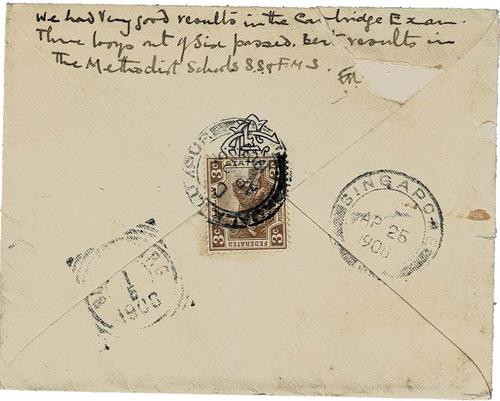 We had very good results in the Cambridge Exam.
Three boys out of Six passed. Best results in
The Methodist Schools S.S & F.M.S.
3c
STATES
3c
FEDERATED
SINGAPORE
AP 25
1908
1908